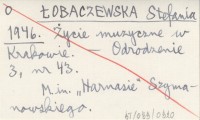 O ŁOBACZEWSKA Stefania
1946. Życie muzyczne w
Krakowie. – Odrodzenie
3, nr 43.
M.in. „Harnasie" Szyma-
nowskiego.